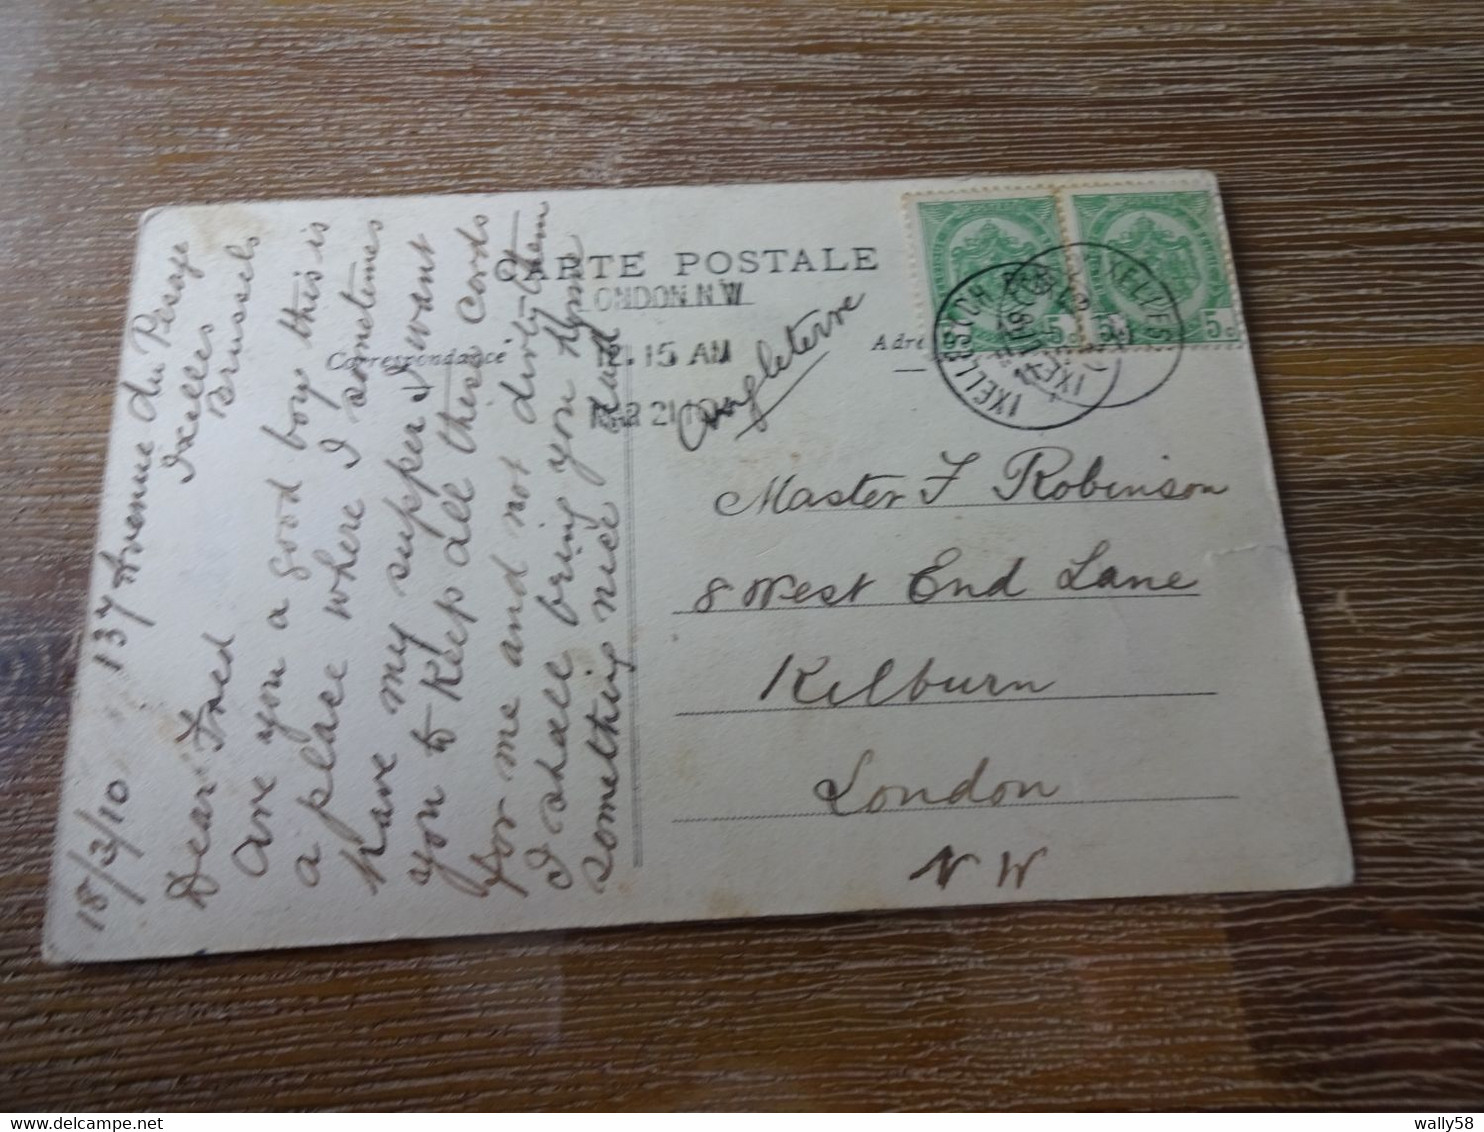 18/3/10 137 Avenue du Pesage
Ixelles
Brussels
Dear Fred
are you a good boy this is
a place where I sometimes
have my supper I want
you to keep all these cards
for me and not dirty them
I shall bring you home
something nice
CARTE POSTALE
LONDON N.W
12.15 AM
MAR 21 10
Correspondance
Angleterre
Adre
5c
5c
IXELLES
Master F Robinson
8 West End Lane
Kilburn
London
N W
wally58